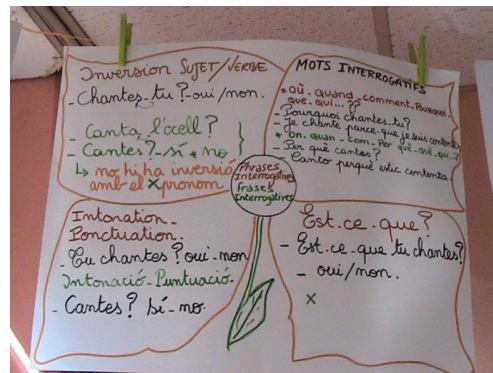 Inversion SUJET/VERBE
- Chantes-tu ? - oui / non.
- Canta l'ocell?
- Cantes? - sí - no
↳ no hi ha inversió
amb el pronom
MOTS INTERROGATIFS
* où - quand - comment - Pourquoi
que - qui...??
- Pourquoi chantes-tu?
- Je chante parce que je suis contente
* on - quan - com - Per què - què - qui...?
- Per què cantes?
Canto perquè estic contenta.
Phrases
Interrogatives
Frases
Interrogatives
Intonation -
Ponctuation.
Tu chantes? oui - non
Intonació - Puntuació -
- Cantes? Sí - no.
Est-ce-que?
- Est-ce-que tu chantes?
- oui / non.
x